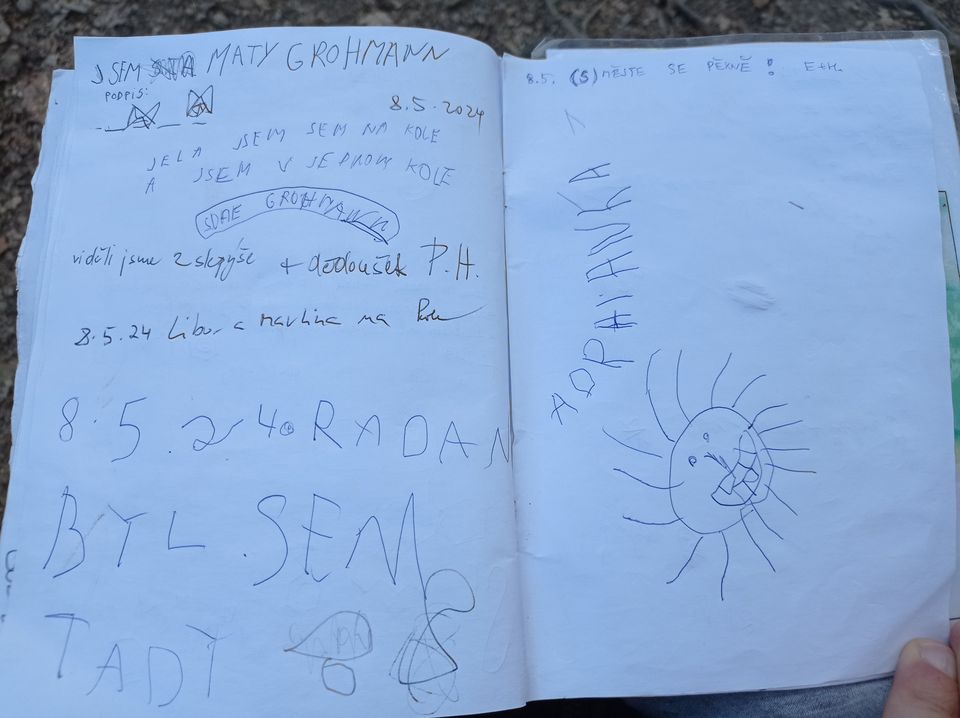 JSEM MATY GROHMANN
PODPIS:
8.5.2024
JELA JSEM SEM NA KOLE
A JSEM V JEDNOM KOLE
GROHMANN
viděli jsme 2 slepýše + dědoušek P.H.
8.5.24 Libor a na
8.5.24. RADAN
BYL SEM
TADY
8.5. (S)MĚJTE SE PĚKNĚ! E+H.
ADRIANKA